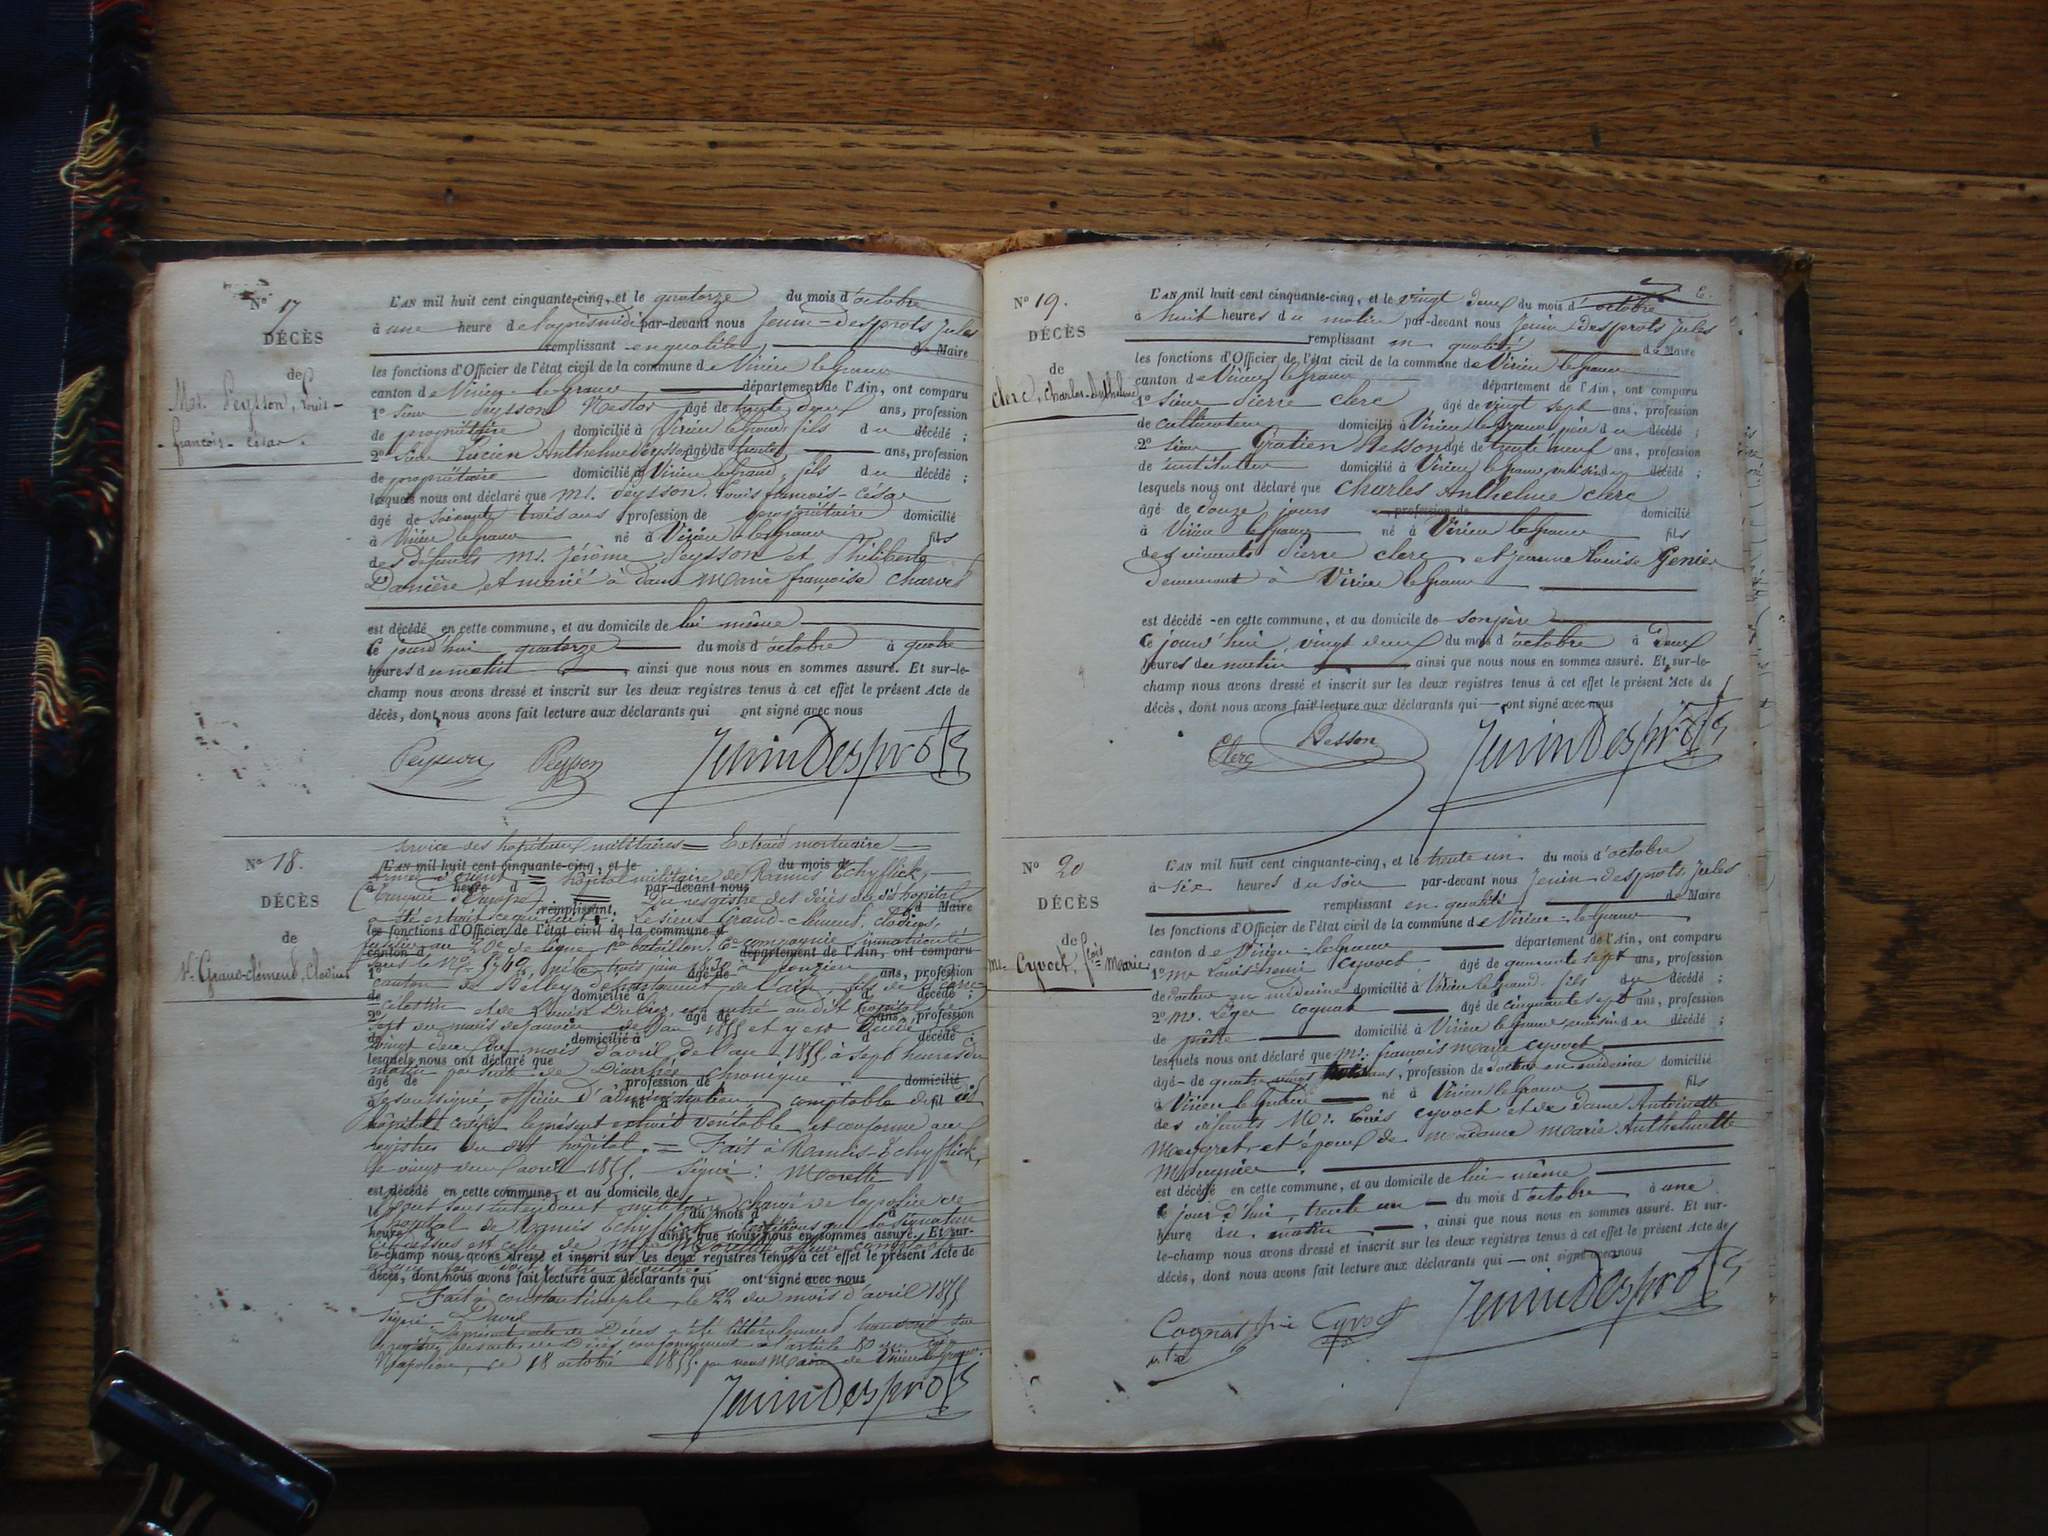 N° 17
DÉCÈS
de
Mr. Peysson, Louis-
françois-César.
L'AN mil huit cent cinquante-cinq, et le quatorze du mois d'octobre
à une heure de l'après midi par-devant nous Jenin-desprots Jules
remplissant en qualité de Maire
les fonctions d'Officier de l'état civil de la commune de Virieu le Grand
canton de Virieu-le-Grand département de l'Ain, ont comparu
1° Sieur Peysson Nestor âgé de trente deux ans, profession
de propriétaire domicilié à Virieu le Grand, fils du décédé ;
2° Sieur Lucien Anthelme Peysson âgé de trente ans, profession
de propriétaire domicilié à Virieu le Grand, fils du décédé ;
lesquels nous ont déclaré que Mr. Peysson, Louis françois-César
âgé de soixante trois ans profession de propriétaire domicilié
à Virieu le Grand né à Virieu le Grand fils
des défunts Mr. Jérôme Peysson et Philiberte
Danière, et marié à dame Marie françoise Charvet
est décédé en cette commune, et au domicile de lui même
Ce jourd'hui quatorze du mois d'octobre à quatre
heures du matin, ainsi que nous nous en sommes assuré. Et sur-le-
champ nous avons dressé et inscrit sur les deux registres tenus à cet effet le présent Acte de
décès, dont nous avons fait lecture aux déclarants qui ont signé avec nous
Peysson Peysson JeninDesprots
N° 18.
DÉCÈS
de
Sr. Grand-Clément, Claudius
service des hopitaux militaires = Extrait mortuaire =
L'AN mil huit cent cinquante-cinq, et le du mois d
Armée d'Orient = hôpital militaire de Ramis Tchyflick,
à heure d par-devant nous
Du registre des décès du dit hôpital
remplissant d Maire
a été extrait ce qui suit : Le sieur Grand-Clément, Claudius,
les fonctions d'Officier de l'état civil de la commune d
fusilier au de ligne, bataillon, compagnie immatriculé
canton d département de l'Ain, ont comparu
sous le N° né le trois juin à
1° âgé de ans, profession
canton de Belley, département de l'ain, fils de
de domicilié à d décédé ;
Célestin et de Louise est entré au dit hopital le
2° âgé de ans, profession
sept du mois de janvier de l'an 1855 et y est décédé le
de domicilié à d décédé ;
vingt deux du mois d'avril de l'an 1855 à sept heures du
lesquels nous ont déclaré que
matin par suite de Diarrhée chronique
âgé de profession de domicilié
Je soussigné officier d'administration comptable du dit
né à fil
hôpital certifie le présent extrait véritable et conforme aux
registres du dit hôpital. = Fait à Ramis-Tchyflick,
le vingt deux avril 1855. Signé : Morette
est décédé en cette commune, et au domicile de
Nous sous intendant militaire chargé de la police de
l du mois d à
l'hopital de Ramis Tchyflick certifions que la signature
heure d ainsi que nous nous en sommes assuré. Et sur-
ci-dessus est celle de Mr Morette officier comptable
le-champ nous avons dressé et inscrit sur les deux registres tenus à cet effet le présent Acte de
décès, dont nous avons fait lecture aux déclarants qui ont signé avec nous
Fait à constantinople, le 22 du mois d'avril 1855
Signé
Le présent acte de Décès a été littéralement transcrit sur
le registre des actes de Décès conformément à l'article du code
Napoléon, ce 18 octobre 1855. par nous Maire de Virieu le Grand.
JeninDesprots
6.
N° 19.
DÉCÈS
de
Clerc, Charles-Anthelme
L'AN mil huit cent cinquante-cinq, et le vingt deux du mois d'octobre
à huit heures du matin par-devant nous Jenin desprots Jules
remplissant en qualité du Maire
les fonctions d'Officier de l'état civil de la commune de Virieu le Grand
canton de Virieu le Grand département de l'Ain, ont comparu
1° Sieur Pierre Clerc âgé de vingt sept ans, profession
de cultivateur domicilié à Virieu le Grand père du décédé ;
2° Sieur Gratien Besson âgé de trente neuf ans, profession
de instituteur domicilié à Virieu le Grand, voisin du décédé ;
lesquels nous ont déclaré que Charles Anthelme Clerc
âgé de douze jours profession de domicilié
à Virieu le Grand né à Virieu le Grand fils
des vivants Pierre Clerc et Jeanne Louise Genier
demeurant à Virieu le Grand
est décédé en cette commune, et au domicile de son père
Ce jourd'hui, vingt deux du mois d'octobre à deux
heures du matin ainsi que nous nous en sommes assuré. Et sur-le-
champ nous avons dressé et inscrit sur les deux registres tenus à cet effet le présent Acte de
décès, dont nous avons fait lecture aux déclarants qui — ont signé avec nous
Clerc Besson JeninDesprots
N° 20
DÉCÈS
de
Mr. Cyvoct, fçois Marie
L'AN mil huit cent cinquante-cinq, et le trente un du mois d'octobre
à six heures du soir par-devant nous Jenin desprots Jules
remplissant en qualité de Maire
les fonctions d'Officier de l'état civil de la commune de Virieu-le-Grand
canton de Virieu-le-Grand département de l'Ain, ont comparu
1° Mr Louis henri Cyvoct, âgé de quarante sept ans, profession
de docteur en médecine domicilié à Virieu le Grand fils du décédé ;
2° Mr. Léger Cognat âgé de cinquante sept ans, profession
de prêtre domicilié à Virieu le Grand, voisin du décédé ;
lesquels nous ont déclaré que Mr. françois Marie Cyvoct
âgé de quatre vingt ans, profession de docteur en médecine domicilié
à Virieu le Grand né à Virieu le Grand fils
des défunts Mr. Louis Cyvoct et de Dame Antoinette
et époux de Madame Marie Anthelmette
est décédé en cette commune, et au domicile de lui même
Ce jour d'hui, trente un du mois d'octobre à une
heure du matin, ainsi que nous nous en sommes assuré. Et sur-
le-champ nous avons dressé et inscrit sur les deux registres tenus à cet effet le présent Acte de
décès, dont nous avons fait lecture aux déclarants qui — ont signé avec nous
Cognat Cyvoct JeninDesprots